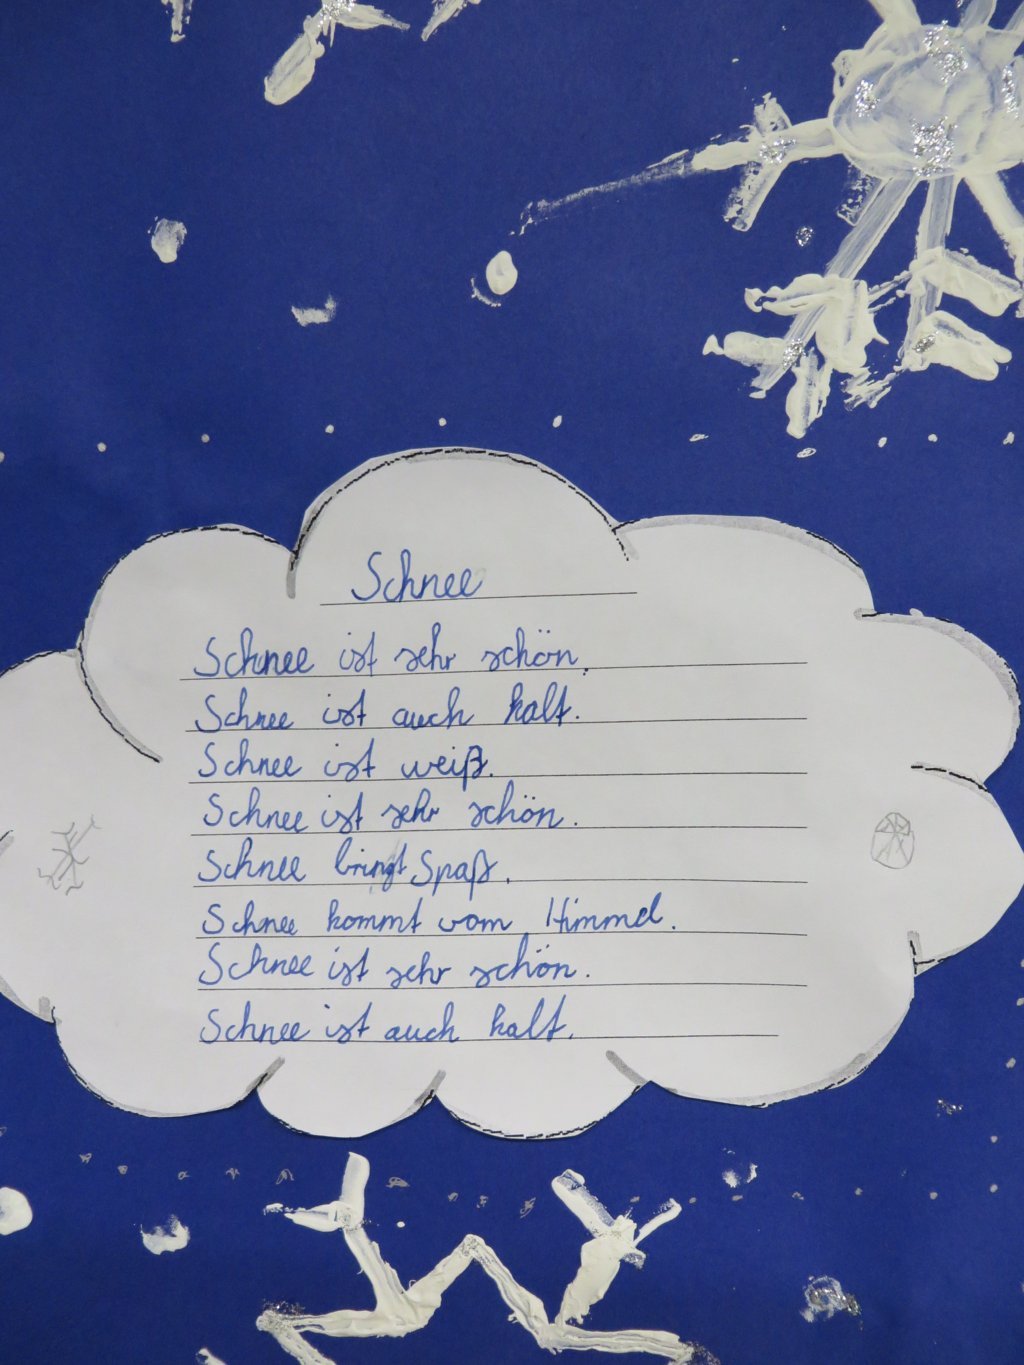 Schnee
Schnee ist sehr schön.
Schnee ist auch kalt.
Schnee ist weiß.
Schnee ist sehr schön.
Schnee bringt Spaß.
Schnee kommt vom Himmel.
Schnee ist sehr schön.
Schnee ist auch kalt.